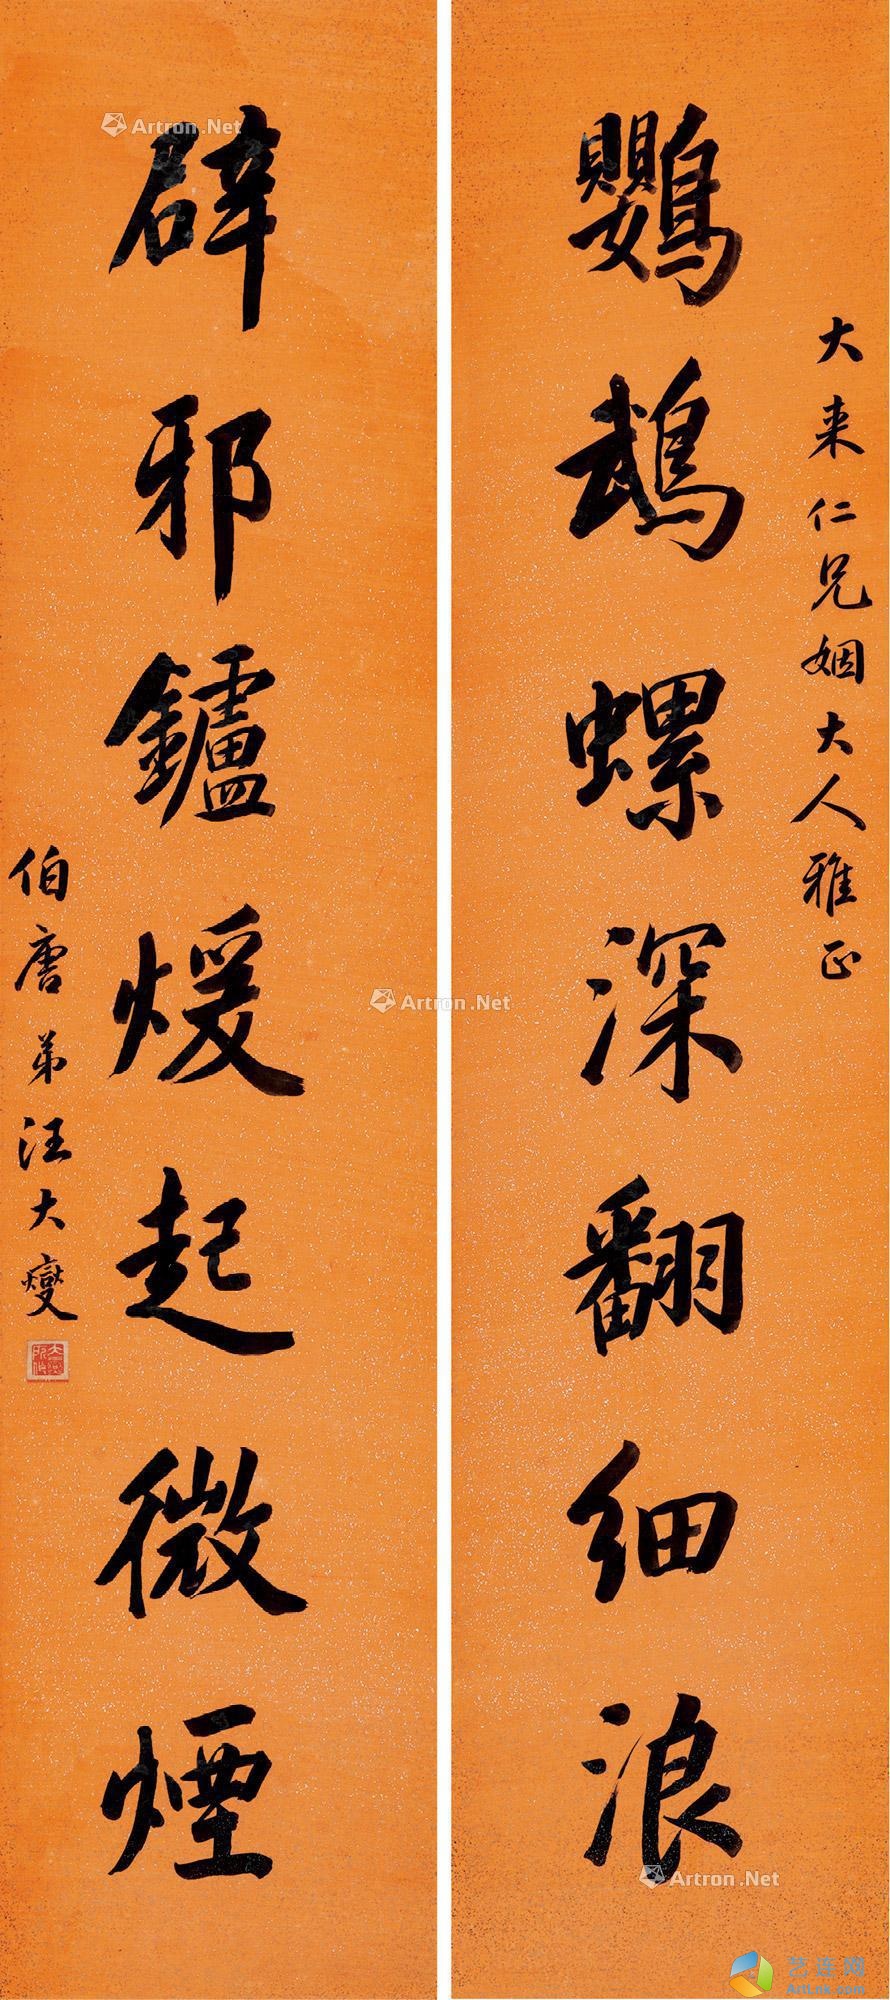 大来仁兄姻大人雅正
鸚鵡螺深翻細浪
辟邪鑪煖起微煙
伯唐弟汪大燮
Artron.Net
Artron.Net
Artron.Net
艺连网
ArtLnk.com